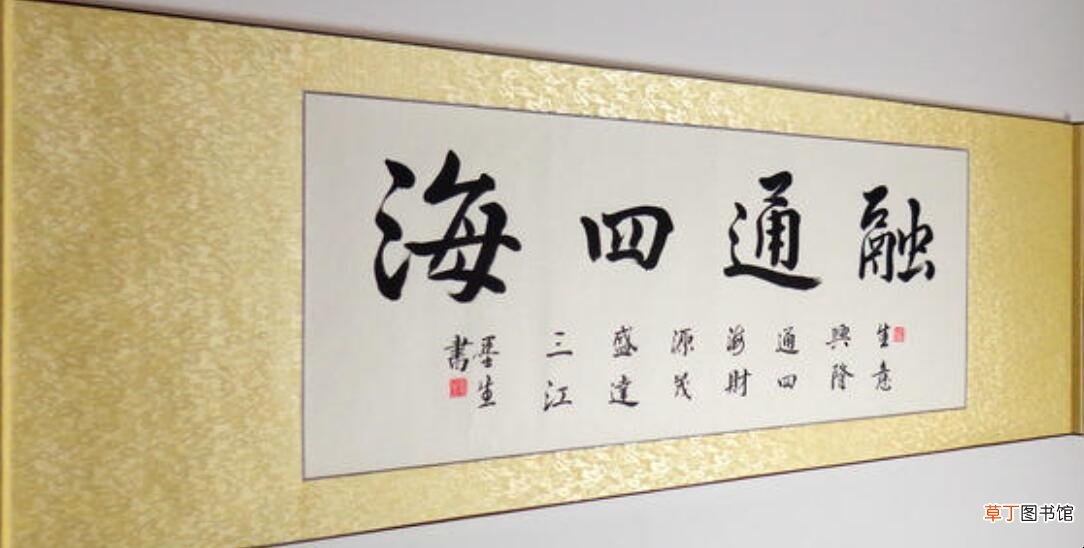 融通四海
生意
興隆
通四
海財
源茂
盛達
三江
墨生
書
草丁图书馆